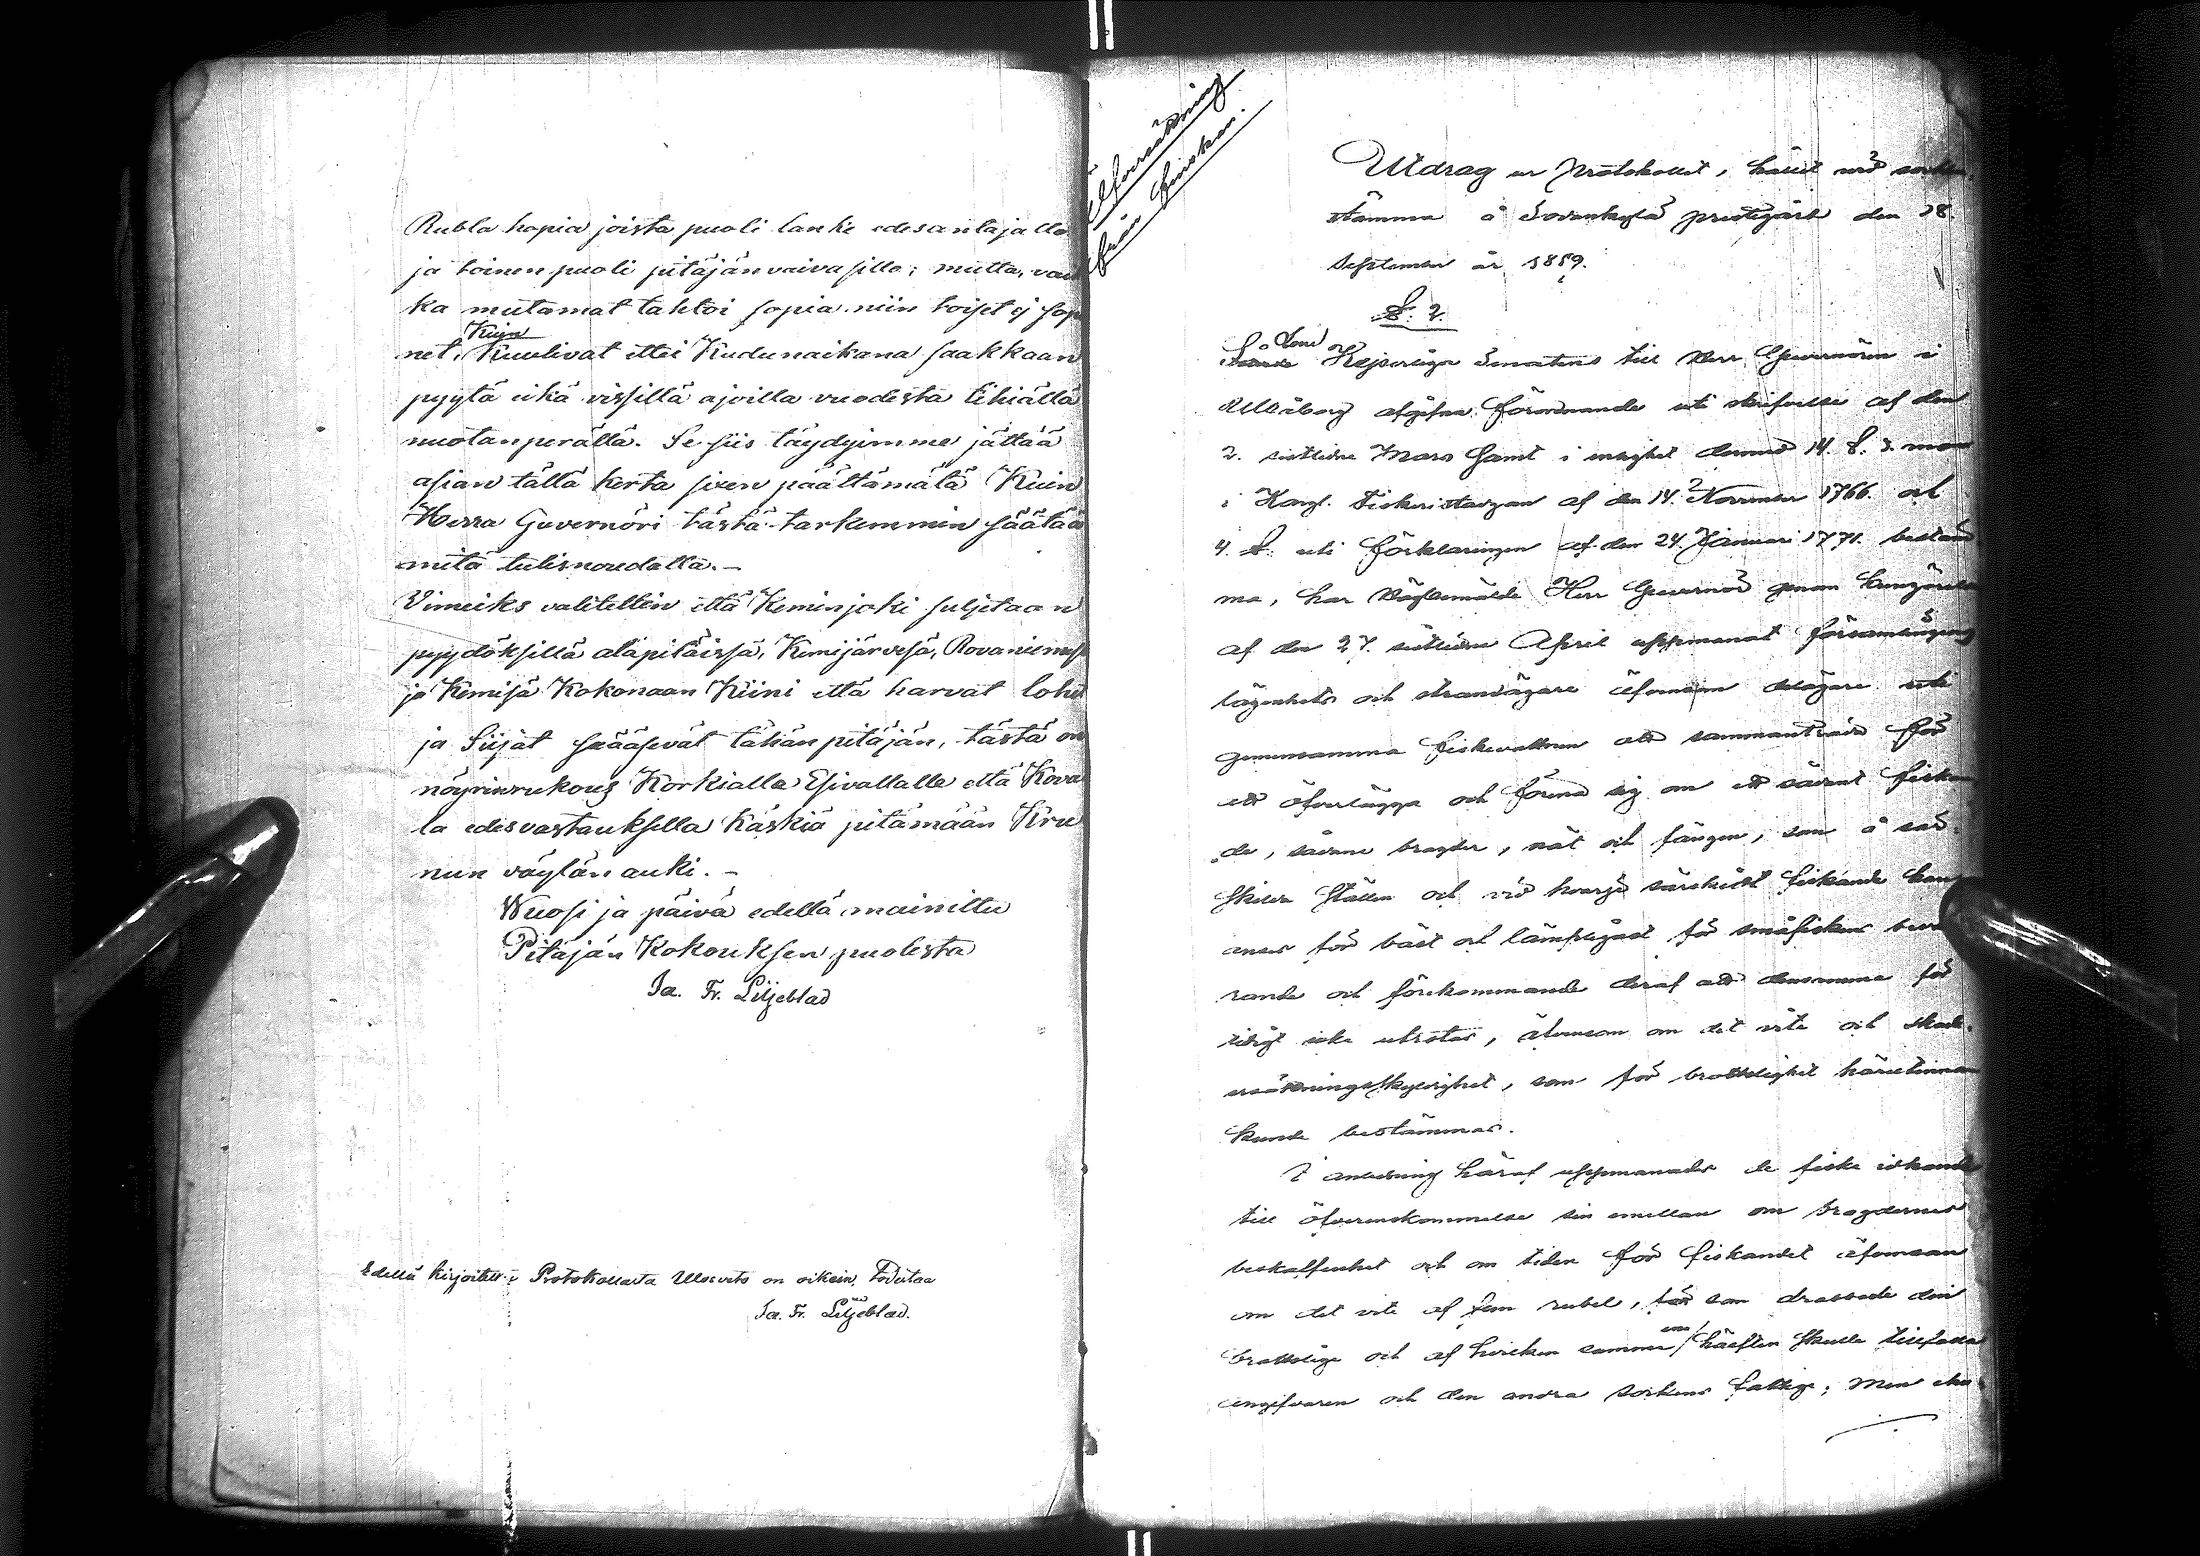 Rubla hopia joista puoli lanke edesantajalle
ja toinen puoli pitäjänvaivasille; mutta, vaik
ka mutamat tahtoi sopia niin toiset ej sop
net. Kuin
Kuulivat ettei Kudunaikana saakkaan
pyytä eikä vissillä ajoilla vuodesta tehiällä
nuotanperällä. Se siis täydyimme jättää
asian tällä kerta siten päättämätä Kuin
Herra Guvernöri tästä tarkemmin säätää
mitä tulis noudatta.—
Vimeiks valitettin että Keminjoki suljetaan
pyydöksillä alapitäissä, Kemijärvesä, Rovaniemes
ja Kemisä Kokonaan Kiini että harvat lohet
ja Siijat sääsevät tähän pitäjän, tästä on
nöyrinrukous Korkialle Esivallalle että Kova
la edesvastauksella käskiä pitämään Kru
nun väylän auki.—
Wuosi ja päivä edellä mainittu
Pitäjän Kokouksen puolesta
Ja. Fr. Liljeblad
Edellä kirjoitettu Protokollasta Ulosveto on oikein, Todistaa
Ja. Fr. Liljeblad.
Öfversättning
från finskan.
Utdrag ur Protokollet, hållit vid socken
stämma å Sodankylä prestegård den 18.
September år 1859.
§. 2.
Kejserliga Senatens till Herr Guvernören i
Uleåborg afgifna förordnande uti skrifvelse af den
2. sistlidne Mars samt i enighet dermed 14. §. 3. mom
i Kongl. Fiskeristadgan af den 14. November 1766. och
4. §. uti förklaringen af den 24. Januari 1771. bestäm
ma, har Vägbemälde Herr Guvernör genom kungörelse
af den 27. sistlidne April uppmanat församlingens
lägenhets och strandägare äfvensom delägare uti
gemensamma fiskevatten att sammanträda för
att öfverlägga och förena sig om ett sådant fiskan
de, sådana bragder, nät och fängen, som å sär
skilda ställen och vid hvarje särskildt fiskande kan
anses för bäst och lämpligast för småfiskens bevar
rande och förekommande deraf att densamma för
tidigt icke utrotas, äfvensom om det vite och skade-
ersättningsskyldighet, som för brottslighet häruti
kunde bestämmas.
I anledning häraf uppmanades de fiske idkande
till öfverenskommelse sin emellan om bragdernes
beskaffenhet och om tiden för fiskandet äfvensom
om det vite af fem rubel, som drabbade den
brottslige och af hvilken summa ena hälften skulle tillfalla
angifvaren och den andra sockens fattige; men